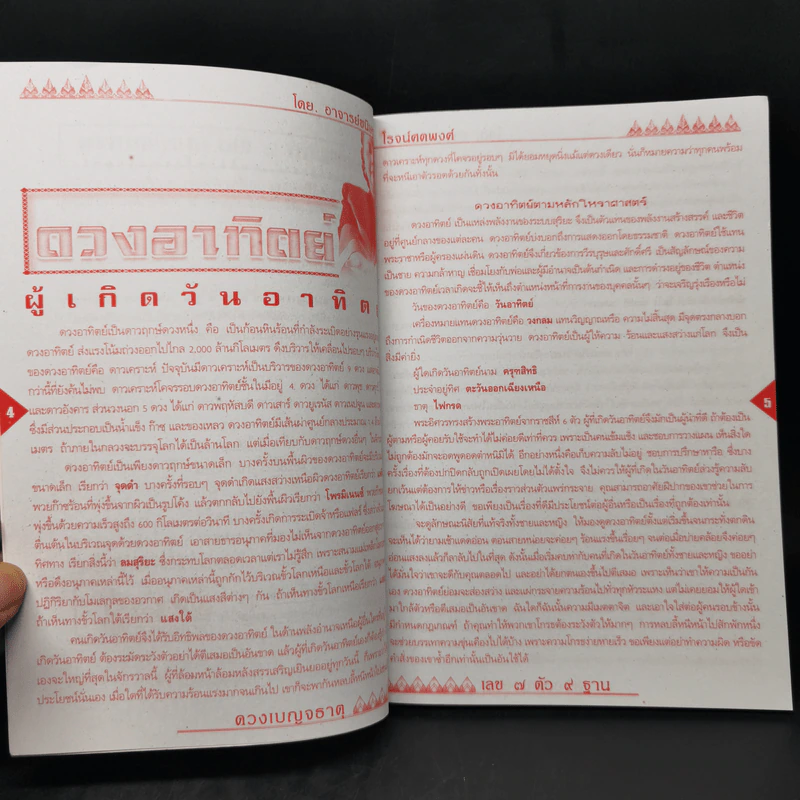 โดย. อาจารย์
ดวงอาทิตย์
ผู้เกิดวันอาทิต
ดวงอาทิตย์เป็นดาวฤกษ์ดวงหนึ่ง คือ เป็นก้อนหินร้อนที่กำลังระเบิดอย่างรุนแรง
ดวงอาทิตย์ ส่งแรงโน้มถ่วงออกไปไกล 2,000 ล้านกิโลเมตร ดึงบริวารให้เคลื่อนไปรอบๆ
ซึ่งเคยรู้จักกันดีคือ ดาวเคราะห์ ปัจจุบันมีดาวเคราะห์เป็นบริวารของดวงอาทิตย์ 9 ดวง
กว่านี้ที่ยังค้นไม่พบ ดาวเคราะห์โคจรรอบดวงอาทิตย์ชั้นในมีอยู่ 4 ดวง ได้แก่ ดาวพุธ
และดาวอังคาร ส่วนวงนอก 5 ดวง ได้แก่ ดาวพฤหัสบดี ดาวเสาร์ ดาวยูเรนัส ดาวเนปจูน
ซึ่งมีส่วนประกอบเป็นน้ำแข็ง ก๊าซ และของเหลว ดวงอาทิตย์มีเส้นผ่าศูนย์กลางประมาณ
เมตร ถ้าภายในกลวงจะบรรจุโลกได้เป็นล้านโลก แต่เมื่อเทียบกับดาวฤกษ์ดวงอื่นๆ
ดวงอาทิตย์เป็นเพียงดาวฤกษ์ขนาดเล็ก บางครั้งบนพื้นผิวของดวงอาทิตย์จะมี
ขนาดเล็ก เรียกว่า จุดดำ บางครั้งที่รอบๆ จุดดำเกิดแสงสว่างเหนือผิวดวงอาทิตย์เรียกว่า
พวยก๊าซร้อนที่พุ่งขึ้นจากผิวเป็นรูปโค้ง แล้วตกกลับไปยังพื้นผิวเรียกว่า โพรมิเนนซ์
พุ่งขึ้นด้วยความเร็วสูงถึง 600 กิโลเมตรต่อวินาที บางครั้งเกิดการระเบิดจ้า
ตื่นเต้นในบริเวณจุดด้วยดวงอาทิตย์ เอาสายธารอนุภาคที่มองไม่เห็นจากดวงอาทิตย์
ทิศทาง เรียกสิ่งนี้ว่า ลมสุริยะ ซึ่งกระทบโลกตลอดเวลาแต่เราไม่รู้สึก เพราะสนามแม่เหล็ก
หรือดึงอนุภาคเหล่านี้ไว้ เมื่ออนุภาคเหล่านี้ถูกกักไว้บริเวณขั้วโลกเหนือและขั้วโลกใต้
ปฏิกิริยากับโมเลกุลของอวกาศ เกิดเป็นแสงสีต่างๆ กัน ถ้าเห็นทางขั้วโลกเหนือเรียกว่า
ถ้าเห็นทางขั้วโลกใต้เรียกว่า แสงใต้
คนเกิดวันอาทิตย์จึงได้รับอิทธิพลของดวงอาทิตย์ ในด้านพลังอำนาจเหนือผู้อื่น
เกิดวันอาทิตย์ ต้องระมัดระวังตัวอย่าได้ดีเสมอเป็นอันขาด แล้วผู้ที่เกิดวันอาทิตย์
เองจะใหญ่ที่สุดในจักรวาลนี้ ผู้ที่ล้อมหน้าล้อมหลังสรรเสริญเยินยออยู่ทุกวันนี้
ประโยชน์นั่นเอง เมื่อใดที่ได้รับความร้อนแรงมากจนเกินไป เขาก็จะพากันหลบลี้หนี
4
ดวงเบญจธาตุ
โรจน์ตตพงศ์
ดาวเคราะห์ทุกดวงที่โคจรอยู่รอบๆ มิได้ยอมหยุดนิ่งแม้แต่ดวงเดียว นั่นก็หมายความว่าทุกคนพร้อม
ที่จะหนีเอาตัวรอดด้วยกันทั้งนั้น
ดวงอาทิตย์ตามหลักโหราศาสตร์
ดวงอาทิตย์ เป็นแหล่งพลังงานของระบบสุริยะ จึงเป็นตัวแทนของพลังงานสร้างสรรค์ และชีวิต
อยู่ที่ศูนย์กลางของแต่ละคน ดวงอาทิตย์บ่งบอกถึงการแสดงออกโดยธรรมชาติ ดวงอาทิตย์ใช้แทน
พระราชาหรือผู้ครองแผ่นดิน ดวงอาทิตย์จึงเกี่ยวข้องการวีรบุรุษและศักดิ์ศรี เป็นสัญลักษณ์ของความ
เป็นชาย ความกล้าหาญ เชื่อมโยงกับพ่อและผู้มีอำนาจเป็นต้นกำเนิด และการดำรงอยู่ของชีวิต ตำแหน่ง
ของดวงอาทิตย์เวลาเกิดจะชี้ให้เห็นถึงตำแหน่งหน้าที่การงานของบุคคลนั้นๆ ว่าจะเจริญรุ่งเรืองหรือไม่
วันของดวงอาทิตย์คือ วันอาทิตย์
เครื่องหมายแทนดวงอาทิตย์คือ วงกลม แทนวิญญาณหรือ ความไม่สิ้นสุด มีจุดตรงกลางบอก
ถึงการกำเนิดชีวิตออกจากความวุ่นวาย ดวงอาทิตย์เป็นผู้ให้ความ -ร้อนและแสงสว่างแก่โลก จึงเป็น
สิ่งมีค่ายิ่ง
ผู้ใดเกิดวันอาทิตย์นาม ครุฑสิทธิ
ประจำอยู่ทิศ ตะวันออกเฉียงเหนือ
ธาตุ ไฟกรด
พระอิศวรทรงสร้างพระอาทิตย์จากราชสีห์ 6 ตัว ผู้ที่เกิดวันอาทิตย์จึงมักเป็นผู้นำที่ดี ถ้าต้องเป็น
ผู้ตามหรือผู้คอยรับใช้จะทำได้ไม่ค่อยดีเท่าที่ควร เพราะเป็นคนเข้มแข็ง และชอบการวางแผน เห็นสิ่งใด
ไม่ถูกต้องมักจะอดพูดอดตำหนิมิได้ อีกอย่างหนึ่งคือเก็บความลับไม่อยู่ ชอบการปรึกษาหารือ ซึ่งบาง
ครั้งเรื่องที่ต้องปกปิดกลับถูกเปิดเผยโดยไม่ได้ตั้งใจ จึงไม่ควรให้ผู้ที่เกิดวันอาทิตย์ล่วงรู้ความลับ
ยกเว้นแต่ต้องการให้ข่าวหรือเรื่องราวส่วนตัวแพร่กระจาย คุณสามารถอาศัยฝีปากของเขาช่วยในการ
โฆษณาได้เป็นอย่างดี ขอเพียงเป็นเรื่องที่ดีมีประโยชน์ต่อผู้อื่นหรือเป็นเรื่องที่ถูกต้องเท่านั้น
จะดูลักษณะนิสัยที่แท้จริงทั้งชายและหญิง ให้มองดูดวงอาทิตย์ตั้งแต่เริ่มขึ้นจนกระทั่งตกดิน
จะเห็นได้ว่ายามเช้าแดดอ่อน ตอนสายหน่อยจะค่อยๆ ร้อนแรงขึ้นเรื่อยๆ จนต่อเมื่อบ่ายคล้อยจึงค่อยๆ
อ่อนแสงลงแล้วก็ลาลับไปในที่สุด ดังนั้นเมื่อเริ่มคบหากับคนที่เกิดในวันอาทิตย์ทั้งชายและหญิง ขออย่า
ได้มั่นใจว่าเขาจะดีกับคุณตลอดไป และอย่าได้ยกตนเองขึ้นไปตีเสมอ เพราะเห็นว่าเขาให้ความเป็นกัน
เอง ดวงอาทิตย์ย่อมจะส่องสว่าง และแผ่กระจายความร้อนไปทั่วทุกหัวระแหง แต่ไม่เคยยอมให้ผู้ใดเข้า
มาใกล้ตัวหรือตีเสมอเป็นอันขาด ฉันใดก็ฉันนั้นความมีเมตตาจิต และเอาใจใส่ต่อผู้คนรอบข้างนั้น
มีกำหนดกฎเกณฑ์ ถ้าคุณทำให้พวกเขาโกรธต้องระวังตัวให้มากๆ การหลบลี้หนีหน้าไปสักพักหนึ่ง
จะช่วยบรรเทาความขุ่นเคืองไปได้บ้าง เพราะความโกรธง่ายหายเร็ว ขอเพียงแต่อย่าทำความผิด หรือขัด
คำสั่งของเขาซ้ำอีกเท่านั้นเป็นอันใช้ได้
5
เลข ๗ ตัว ๙ ฐาน